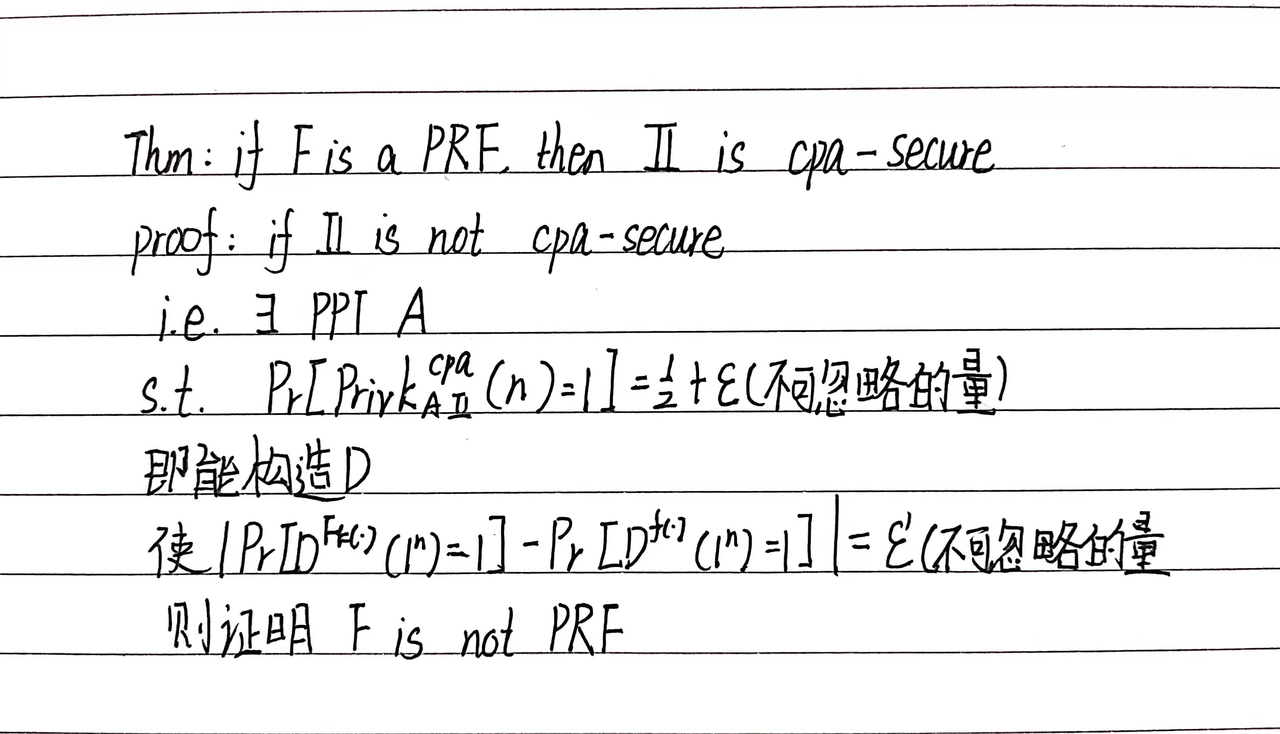 Thm: if F is a PRF, then Π is cpa-secure
proof: if Π is not cpa-secure
i.e. ∃ PPT A
s.t. Pr[Privk^{cpa}_{AΠ}(n)=1]=½+ε(不可忽略的量)
即能构造D
使|Pr[D^{Fk(·)}(1ⁿ)=1]-Pr[D^{f(·)}(1ⁿ)=1]|=ε'(不可忽略的量
则证明 F is not PRF